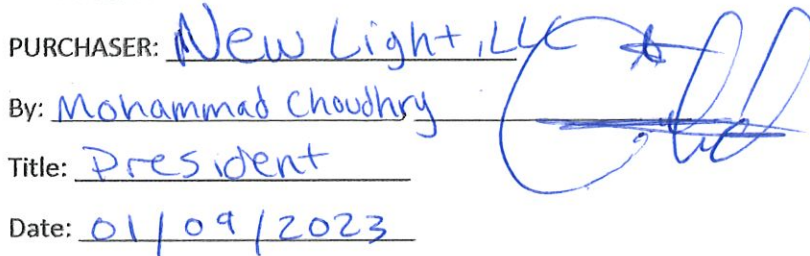 PURCHASER: New Light, LLC
By: Mohammad Choudhry
Title: President
Date: 01/09/2023